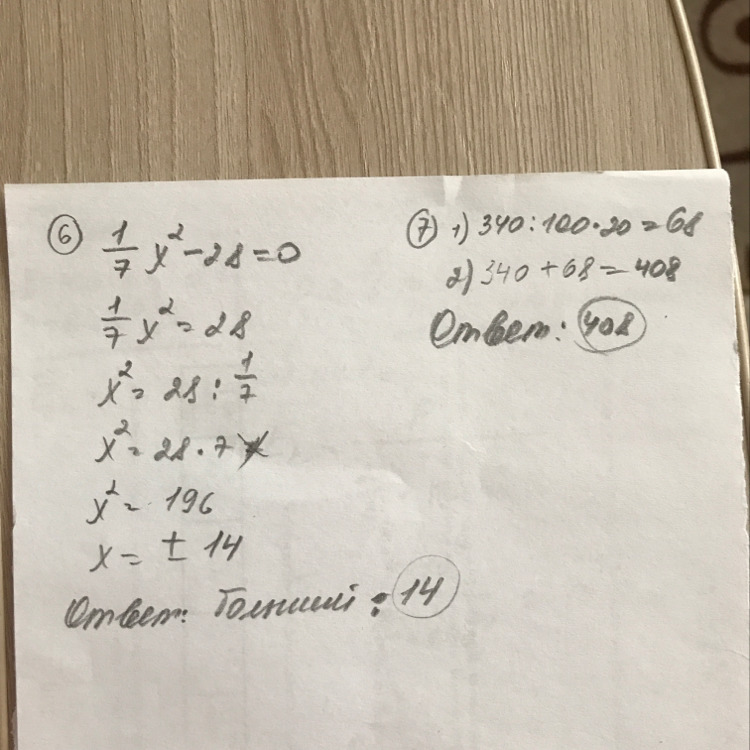 6 1/7 x² - 28 = 0
1/7 x² = 28
x² = 28 : 1/7
x² = 28 · 7
x² = 196
x = ± 14
Ответ: Больший : 14
7 1) 340 : 100 · 20 = 68
2) 340 + 68 = 408
Ответ: 408